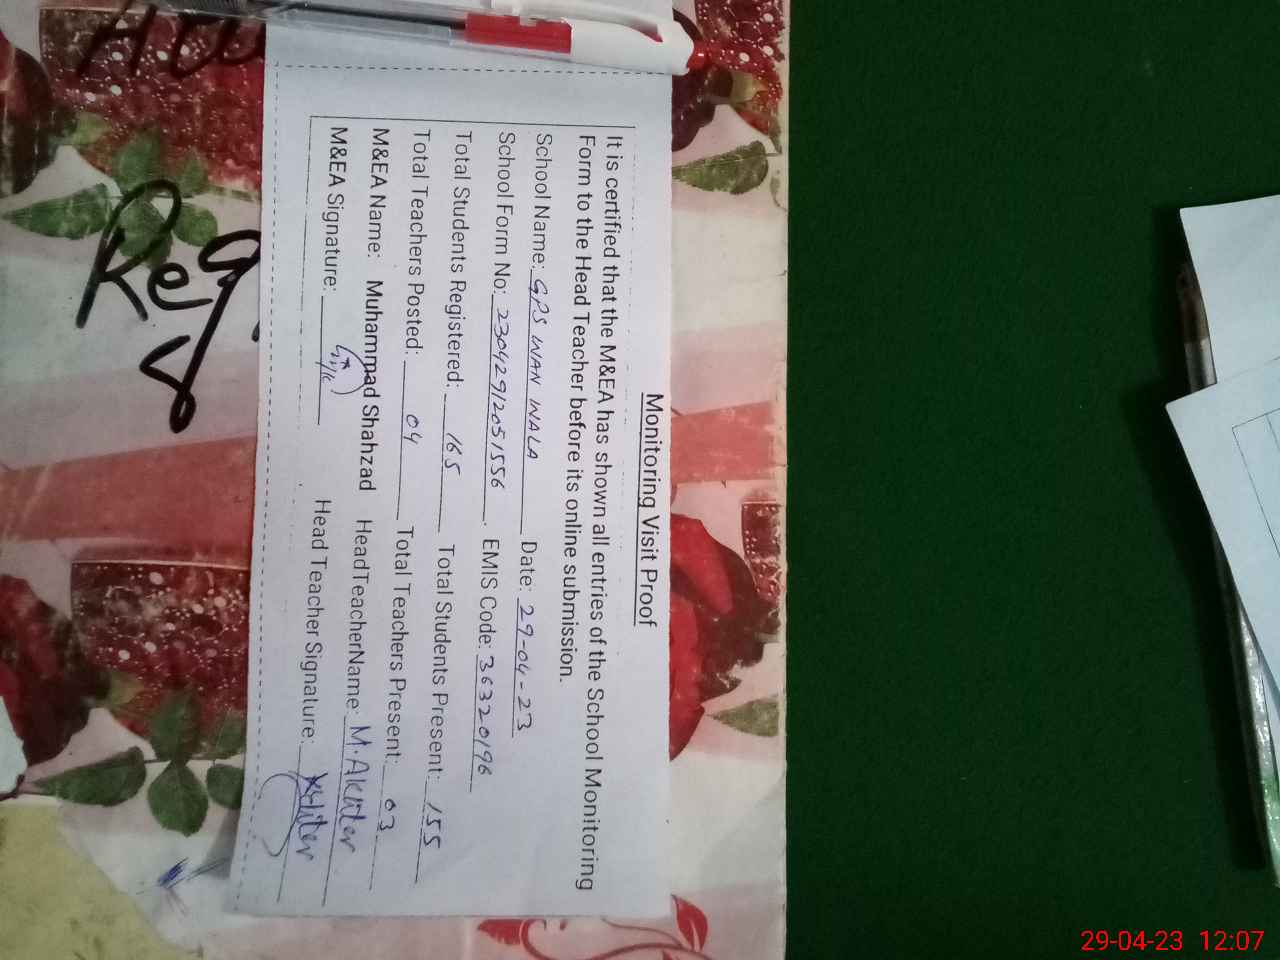 Monitoring Visit Proof
It is certified that the M&EA has shown all entries of the School Monitoring
Form to the Head Teacher before its online submission.
School Name: GPS WAN WALA Date: 29-04-23
School Form No: 23042912051556. EMIS Code: 36320196
Total Students Registered: 165 Total Students Present: 155
Total Teachers Posted: 04 Total Teachers Present: 03
M&EA Name: Muhammad Shahzad HeadTeacherName: M.Akhter
M&EA Signature: Head Teacher Signature: Akhter
Reg
29-04-23 12:07